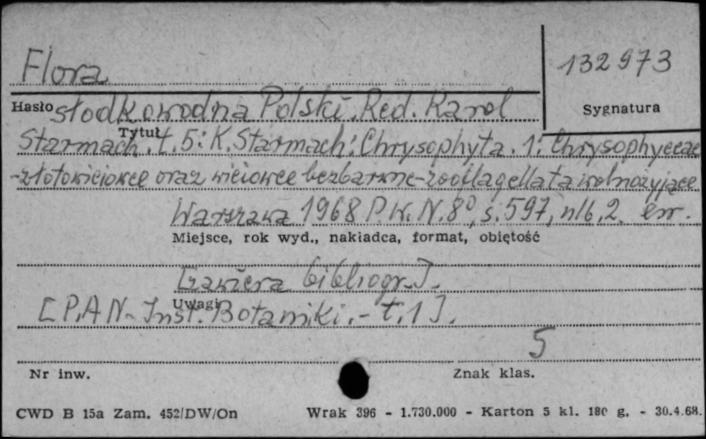 Flora
132973
Hasło
słodkowodna Polski. Red. Karol
Sygnatura
Tytuł
Starmach. t. 5: K. Starmach: Chrysophyta. 1: Chrysophyceae
-złotowiciowce oraz wiciowce bezbarwne-zooflagellata wolnożyjące
Warszawa 1968 P.W.N. 8°, s. 597, nlb. 2.
Miejsce, rok wyd., nakładca, format, objętość
[zawiera bibliogr.].
Uwagi
[P.A N.-Inst. Botaniki. - t. 1].
5
Nr inw.
Znak klas.
CWD B 15a Zam. 452/DW/On
Wrak 396 - 1.730.000 - Karton 5 kl. 180 g. - 30.4.68.